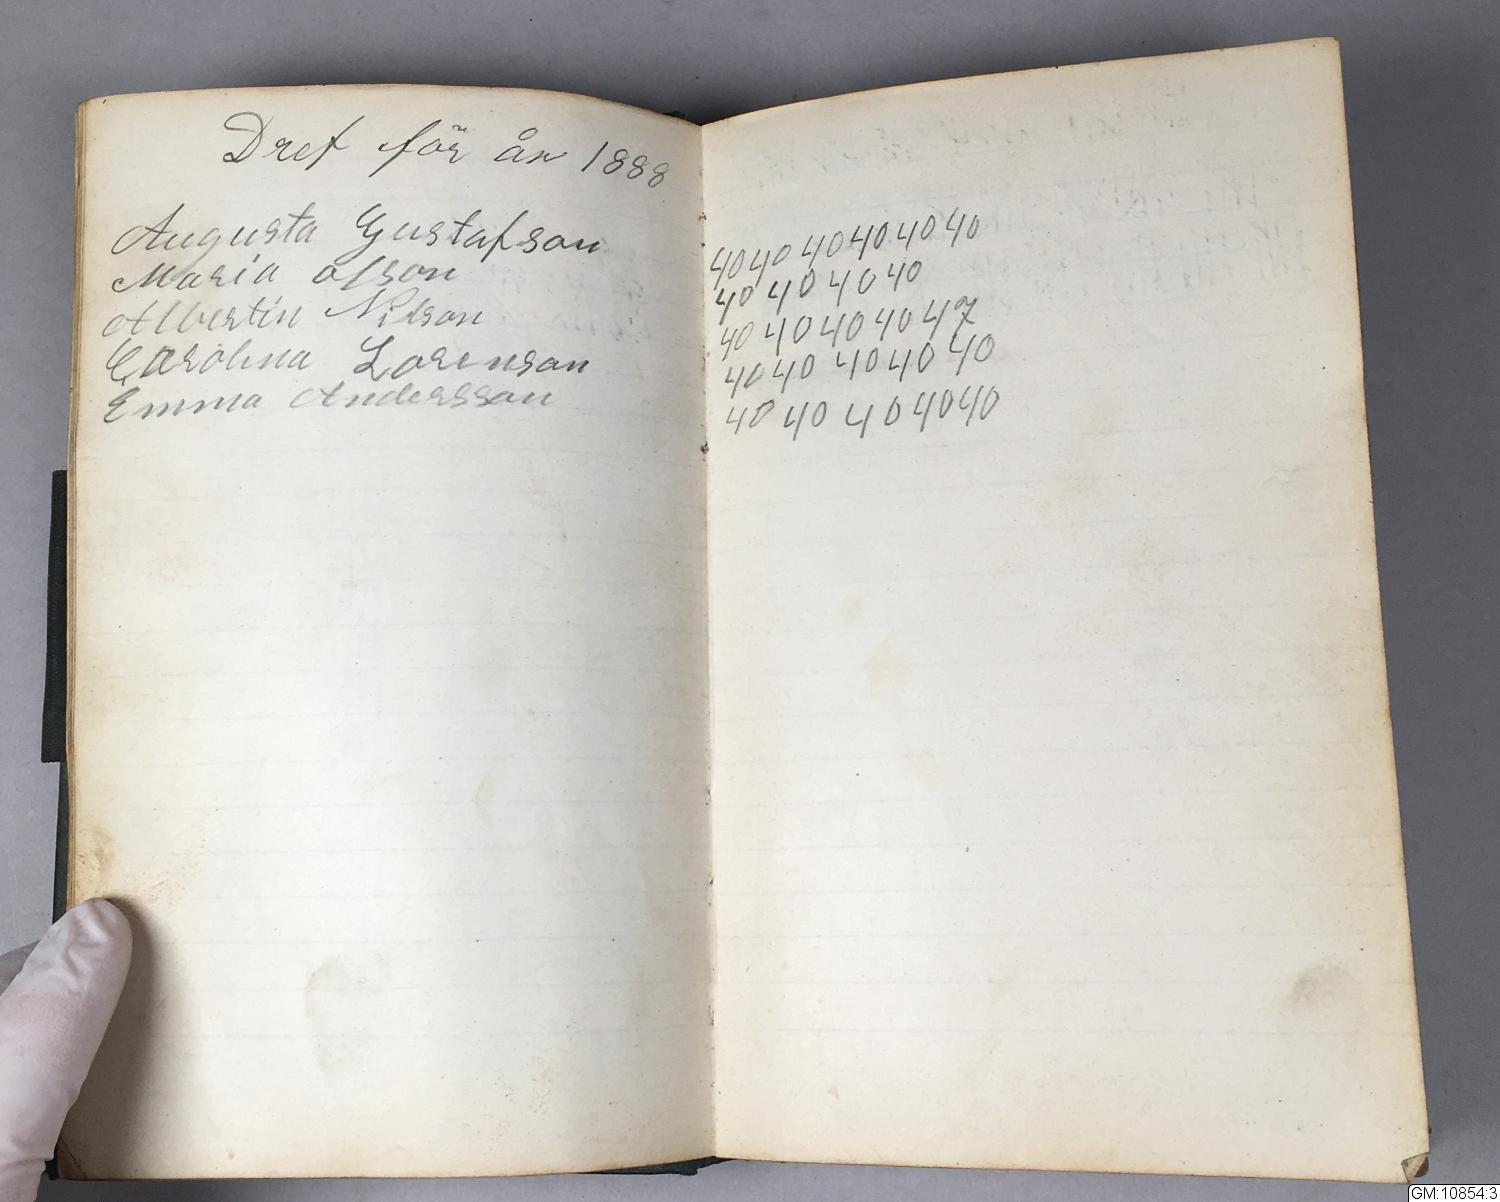 Dref för år 1888
Augusta Gustafson
Maria olson
Albertin Nilson
Carolina Lorenson
Emma Andersson
40 40 40 40 40 40
40 40 40 40
40 40 40 40 47
40 40 40 40 40
40 40 40 40 40
GM:10854:3